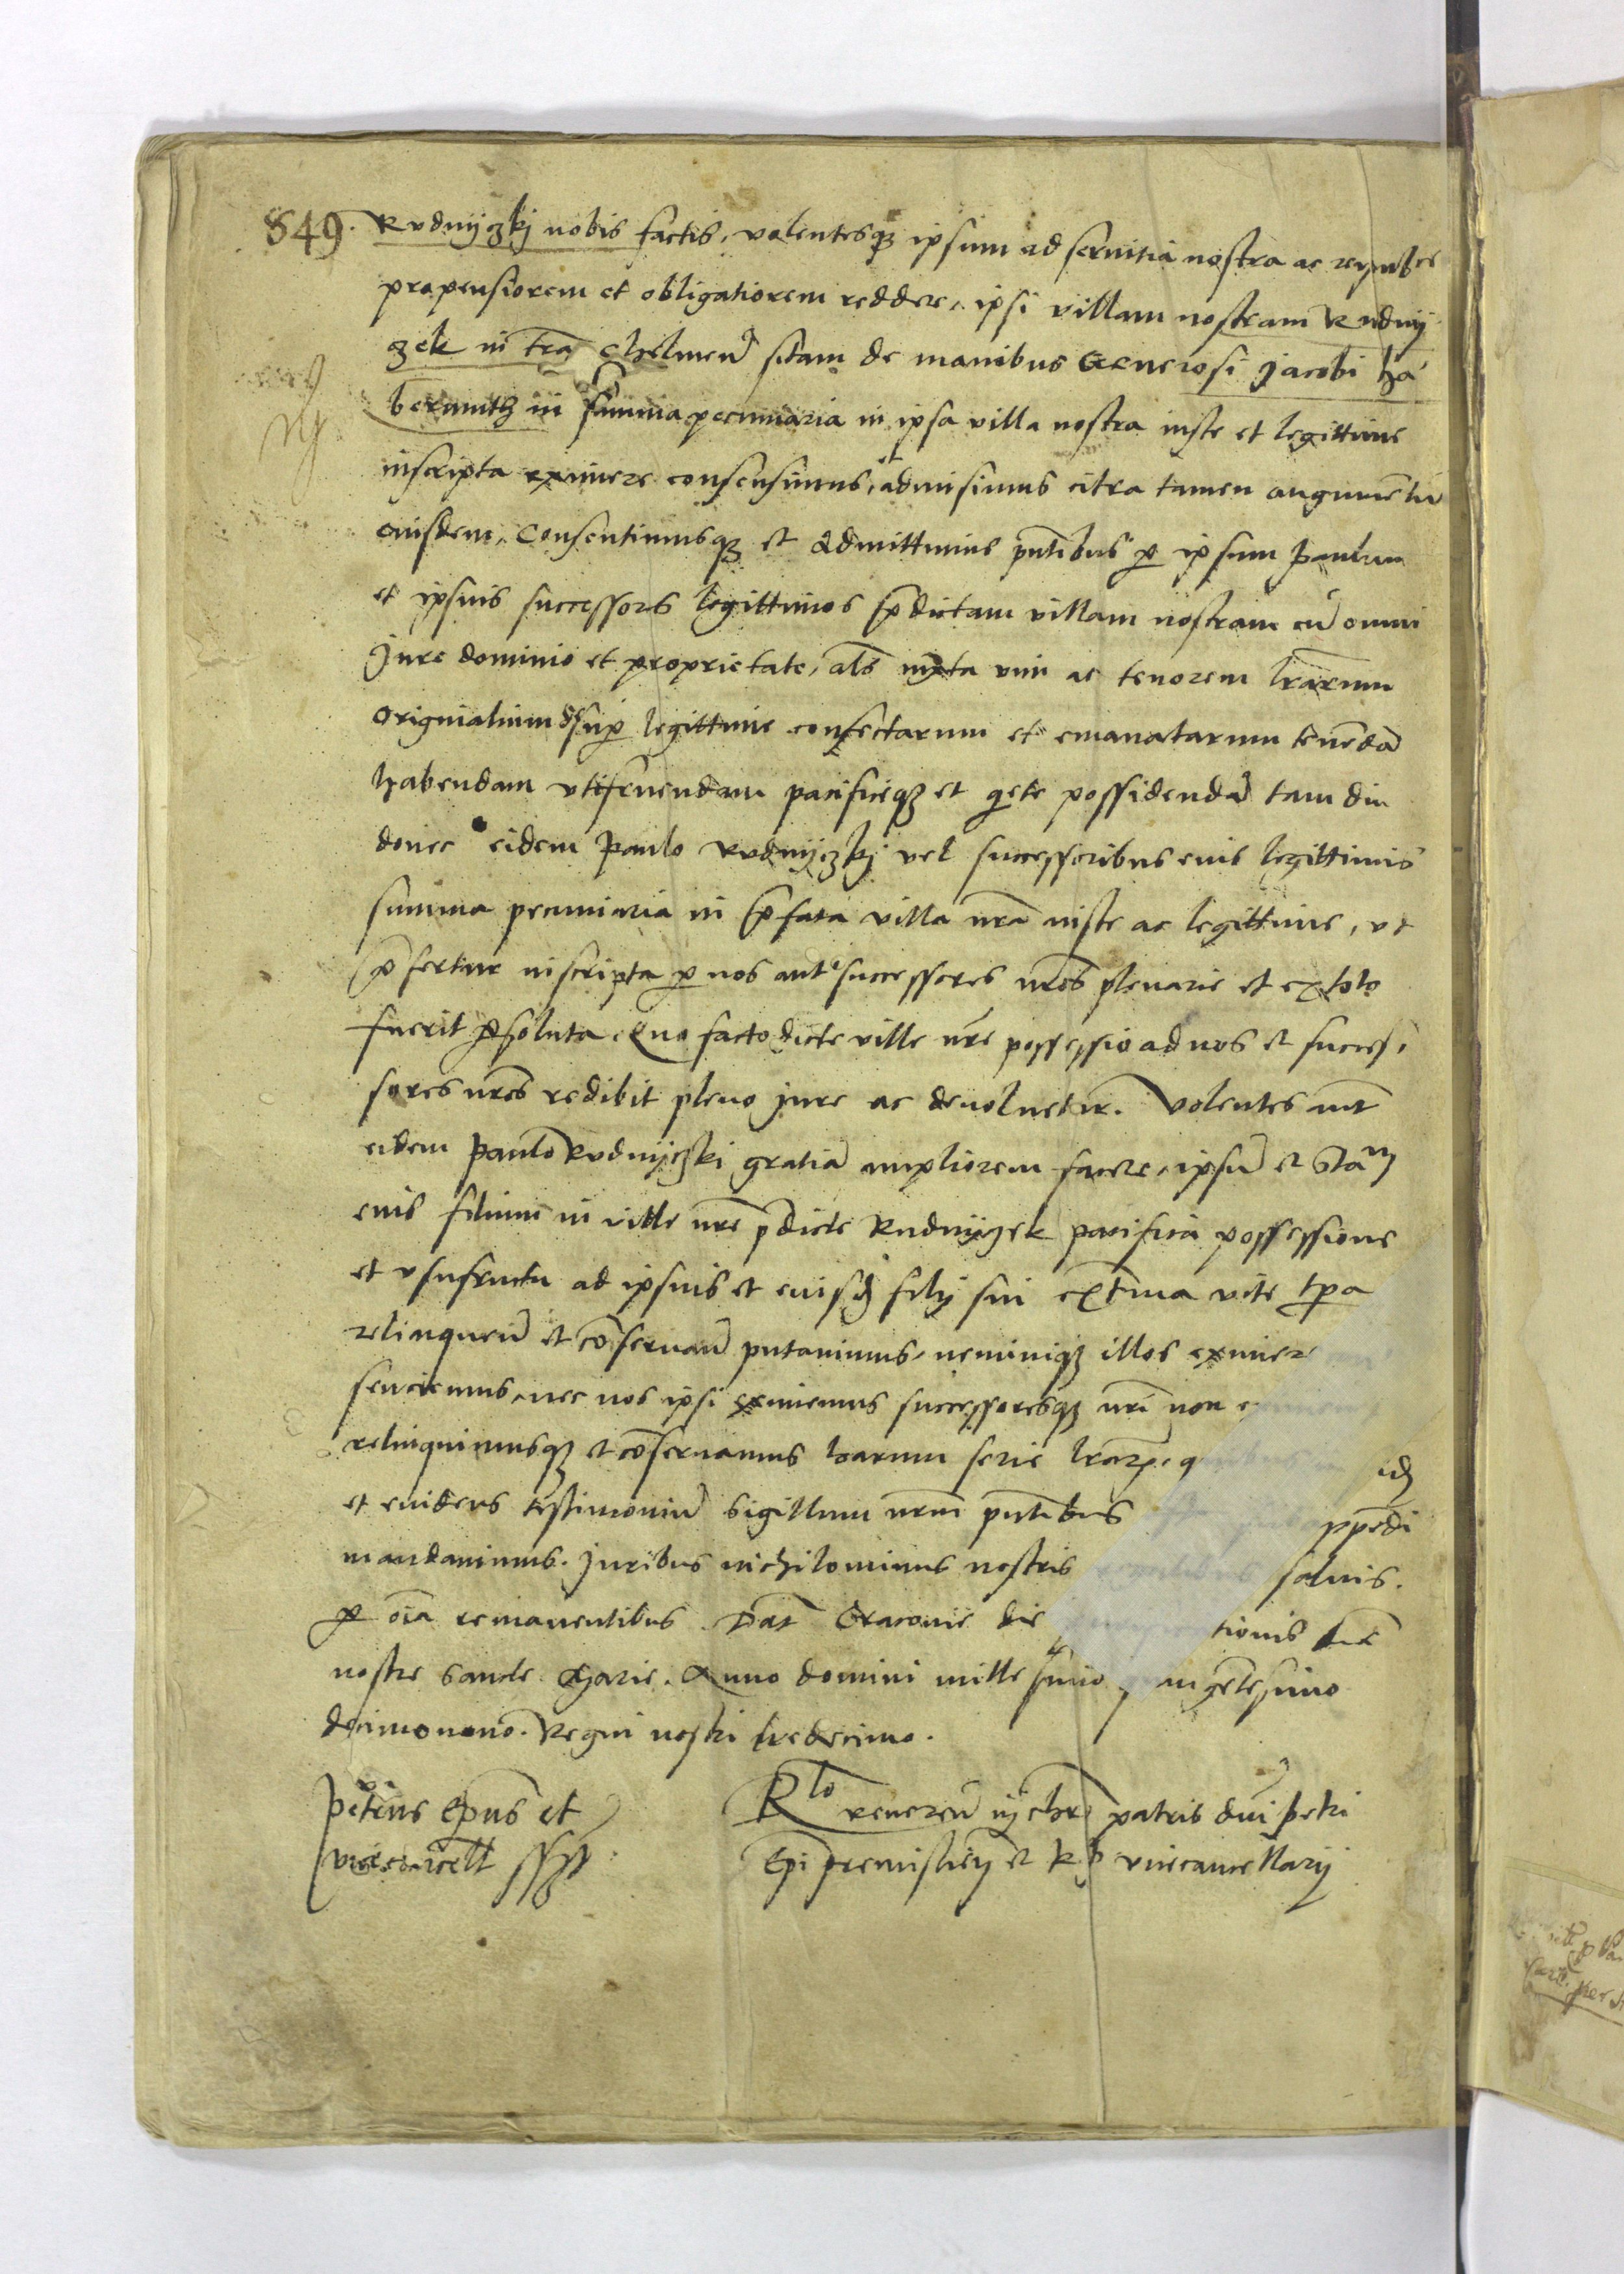 849. Rudnyczkj nobis factis, volentesq3 ipsum ad servitia nostra ac reipub̄ce
propensiorem et obligatiorem reddere, ipsi villam nostram Rudny
czek in tr̄a Chelmeñ sitam de manibus Generosi Jacobi Ha
bermuth in summa pecuniaria in ipsa villa nostra iuste et legittime
inscripta eximere consensimus, et admisimus citra tamen augumentū
eiusdem, Consentimusq3 et Admittimus p̄ntibus p ipsum Paulum
et ipsius successores legittimos p̄dictam villam nostram cū omni
Jure dominio et proprietate, al̄s iuxta vim ac tenorem lr̄arum
Originalium desup legittime confectarum et emanatarum tenendā
habendam utifruendam pacificeq3 et qete possidendā tam diu
donec eidem Paulo Rudnyczkj vel successoribus eius legittimis
summa pecuniaria in p̄fata villa nr̄a iuste ac legittime, ut
p̄fertur inscripta p nos aut successores nr̄os plenarie et ex toto
fuerit psoluta. Quo facto dicte ville nr̄e possessio ad nos et succes,
sores nr̄os redibit pleno jure ac devoluetur. Volentes aūt
eidem Paulo Rudnyczki gratiā ampliorem facere, ipsū et
eius filium in ville nr̄e p̄dicte Rudnyczek pacifica possessione
et usufructu ad ipsius et eiusd filij sui extrema vite tp̄a
relinqueñ et cōservañ putavimus, neminiq3 illos eximere
senciemus, nec nos ipsi eximemus successoresq3 nr̄i non
relinquimusq3 et cōservamus harum serie lr̄arꝝ. q
et evidens testimoniū Sigillum nr̄um p̄ntibus ppēdi
mandavimus. Juribus nichilominus nostris salvis.
p oīa remanentibus. Dat̄ Cracovie die tionis
nostre Sancte Marie. Anno domini millesimo ingētesimo
decimonono. Regni nostri tredecimo.
Petrus Ep̄us et
vicecancell̄ sst
R̄lo Reverēñ in Chr̄o patris dn̄i Petri
Ep̄i Premislieñ et R. P. vicecancellarij